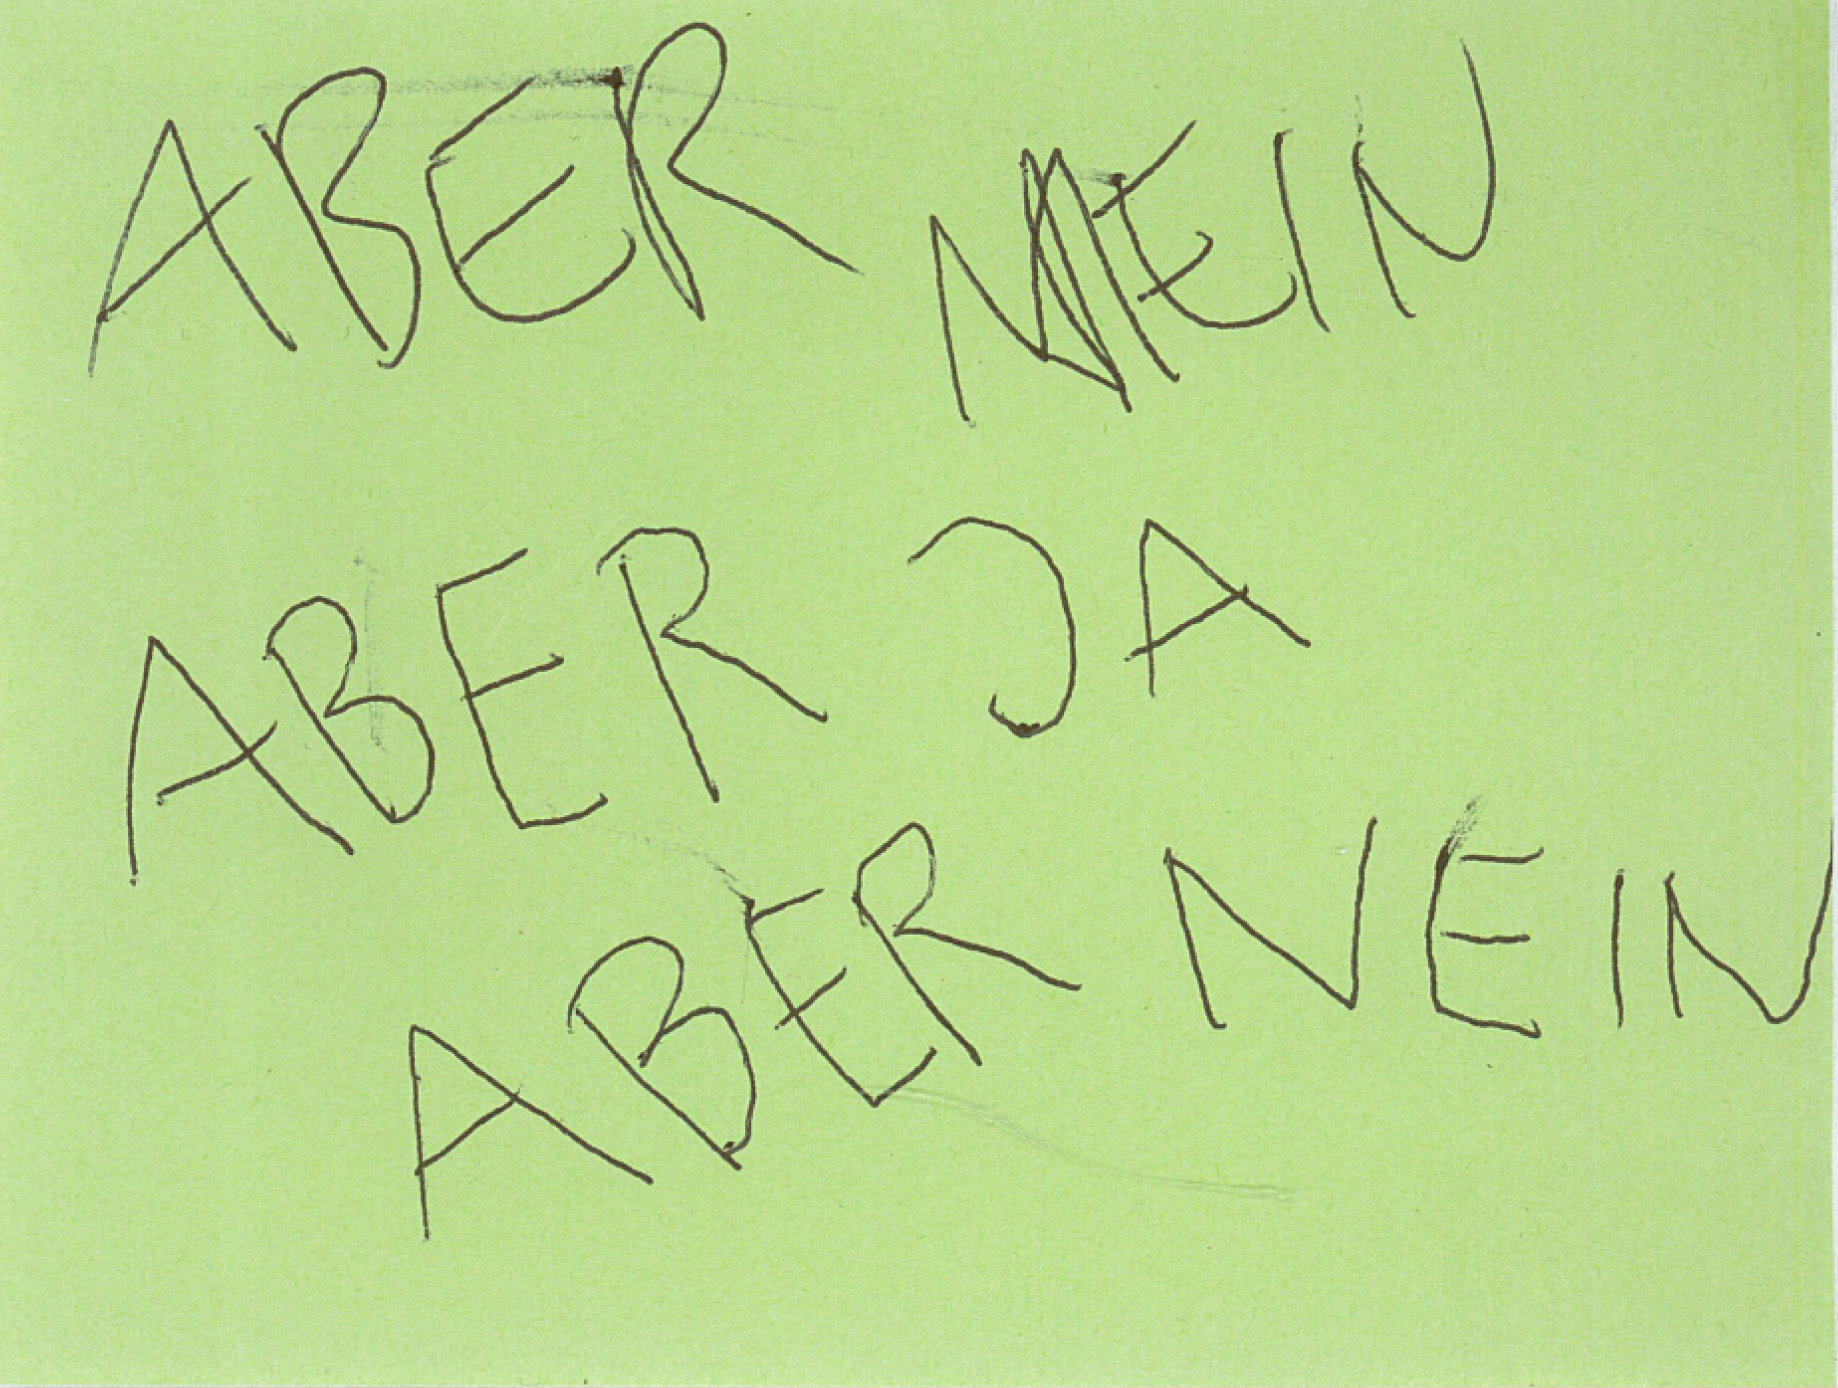 ABER
ABER JA
ABER NEIN